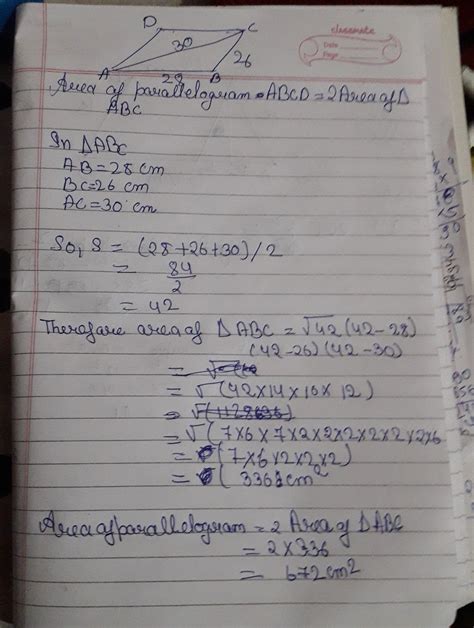 D C
classmate
Date
Page
30
26
A 28 B
Area of parallelogram ABCD = 2 Area of Δ
ABC
In ΔABC
AB = 28 cm
BC = 26 cm
AC = 30 cm
So, S = (28+26+30)/2
= 84
2
= 42
Therefore area of ΔABC = √42(42-28)
(42-26)(42-30)
= √(42×14×16×12)
= √(7×6×7×2×2×2×2×2×2×6
= (7×6×2×2×2)
= 336 cm²
Area of parallelogram = 2 Area of ΔABC
= 2×336
= 672cm²